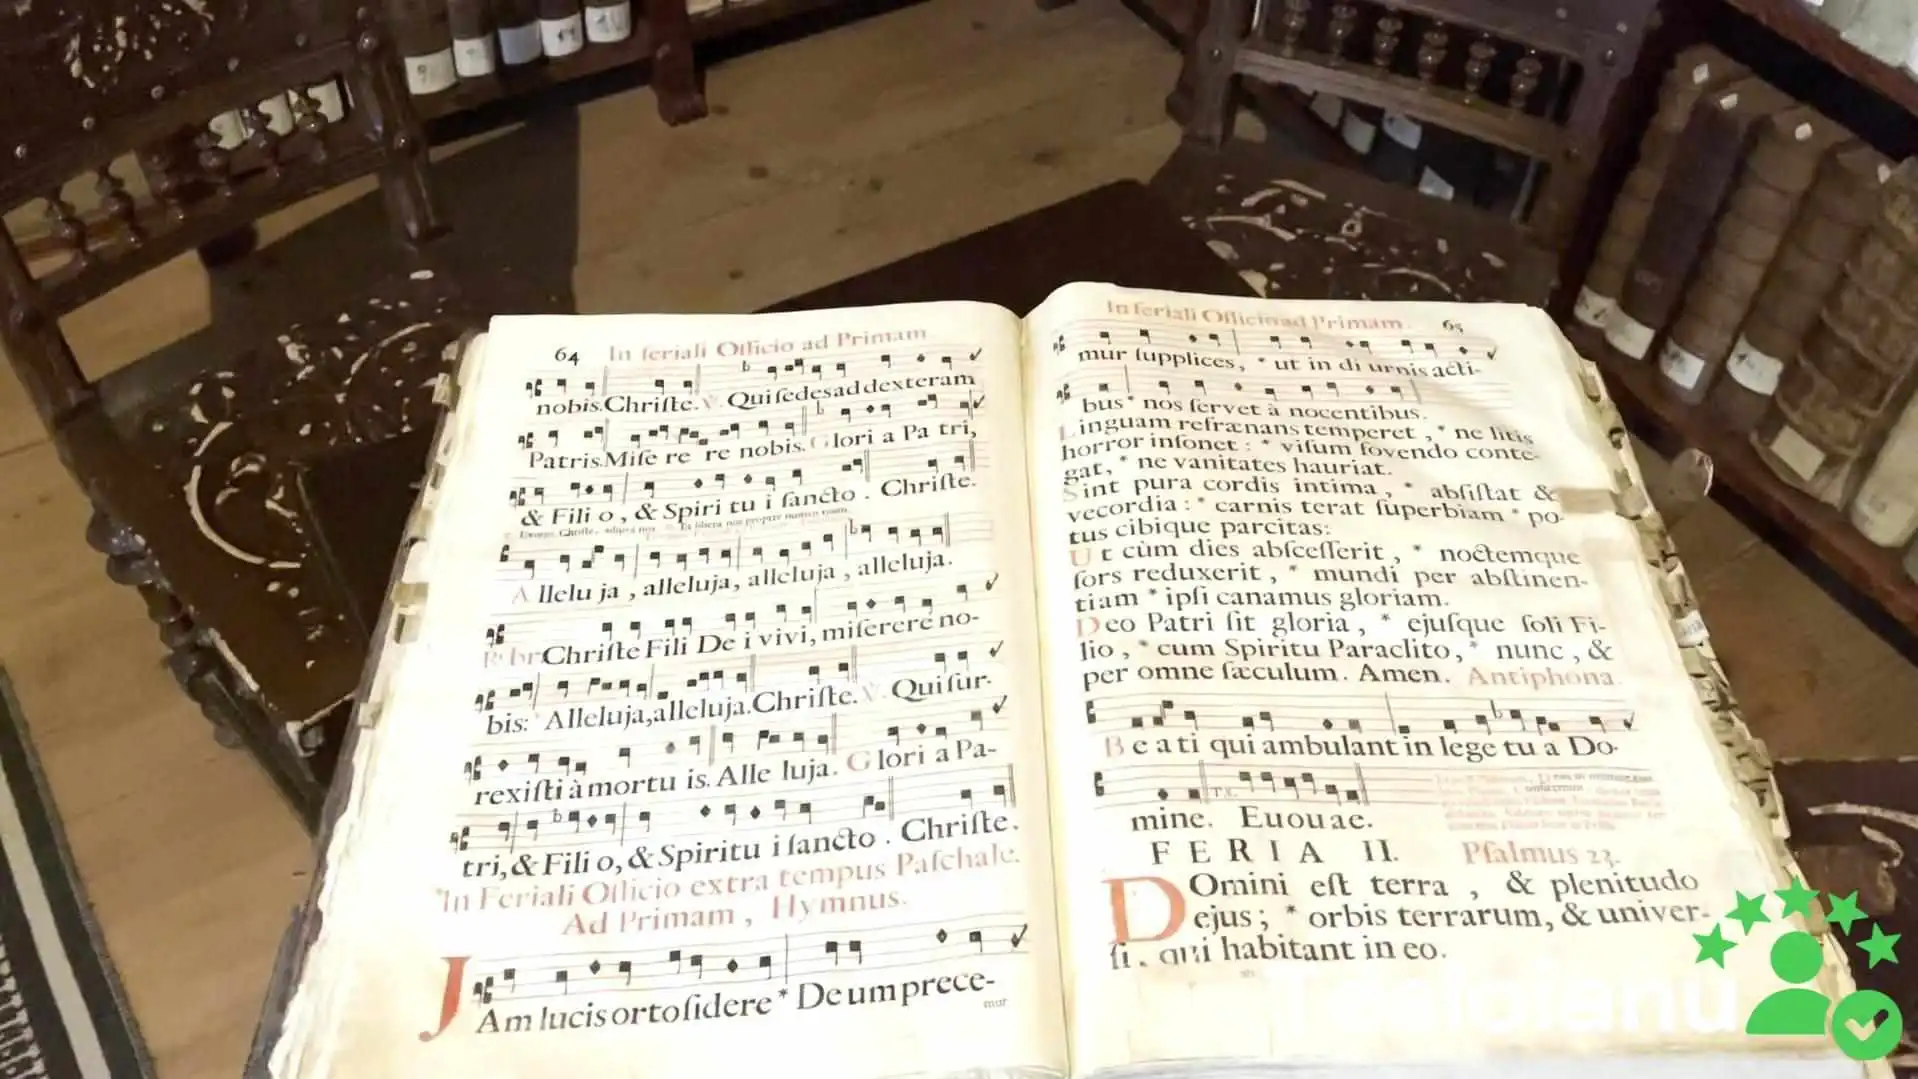 64 In feriali Officio ad Primam
nobis. Chriſte. ℣. Qui ſedes ad dexteram
Patris. Miſe re re nobis. Glori a Pa tri,
& Fili o, & Spiri tu i ſancto. Chriſte.
Alleluja, alleluja, alleluja, alleluja.
Chriſte Fili De i vivi, miſerere no-
bis: * Alleluja, alleluja. Chriſte. ℣. Qui ſur-
rexiſti à mortu is. Alle luja. Glori a Pa-
tri, & Fili o, & Spiritu i ſancto. Chriſte.
In Feriali Officio extra tempus Paſchale.
Ad Primam, Hymnus.
JAm lucis orto ſidere * De um prece-
mur
In feriali Officio ad Primam. 65
mur ſupplices, * ut in di urnis acti-
bus * nos ſervet à nocentibus.
Linguam refrænans temperet, * ne litis
horror inſonet: * viſum fovendo conte-
gat, * ne vanitates hauriat.
Sint pura cordis intima, * abſiſtat &
vecordia: * carnis terat ſuperbiam * po-
tus cibique parcitas:
Ut cùm dies abſceſſerit, * noctemque
ſors reduxerit, * mundi per abſtinen-
tiam * ipſi canamus gloriam.
Deo Patri ſit gloria, * ejuſque ſoli Fi-
lio, * cum Spiritu Paraclito, * nunc, &
per omne ſæculum. Amen. Antiphona.
Be a ti qui ambulant in lege tu a Do-
mine. Euouae.
FERIA II. Pſalmus 23.
DOmini eſt terra, & plenitudo
ejus; * orbis terrarum, & univer-
ſi, qui habitant in eo.